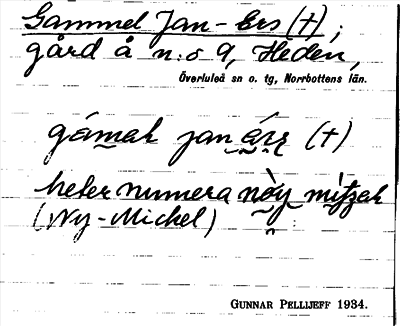 Gammel Jan-Ers (†);
gård å n:o 9, Heden,
Överluleå sn o. tg, Norrbottens län.
gámak jan árs (†)
heter numera nòy mìtzak
(Ny-Mickel)
GUNNAR PELLIJEFF 1934.